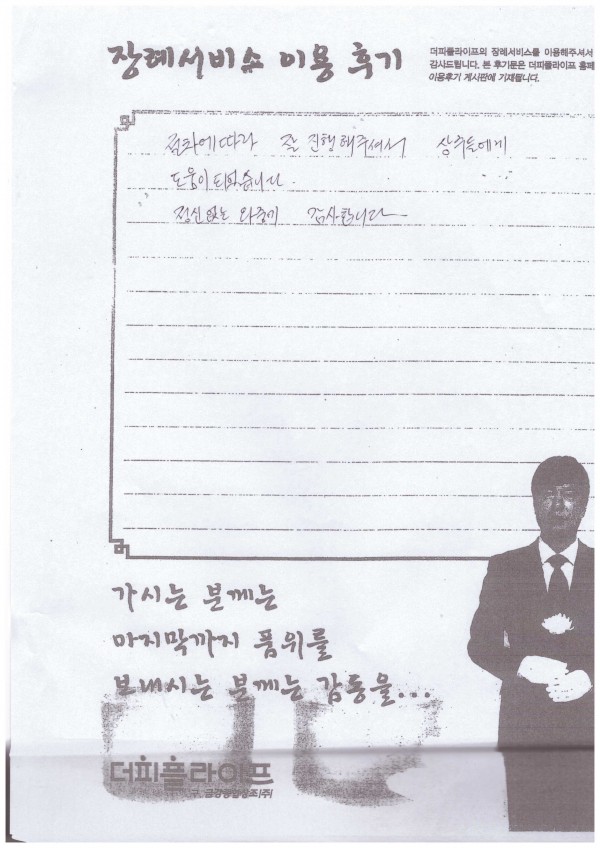 장례서비스 이용 후기
더피플라이프의 장례서비스를 이용해주셔서
감사드립니다. 본 후기문은 더피플라이프 홈페
이용후기 게시판에 기재됩니다.
절차에따라 잘 진행해주셔서 상주들에게
도움이되었습니다.
정신없는 와중에 감사합니다
가시는 분께는
마지막까지 품위를
보내시는 분께는 감동을...
더피플라이프
구. 금강종합상조(주)